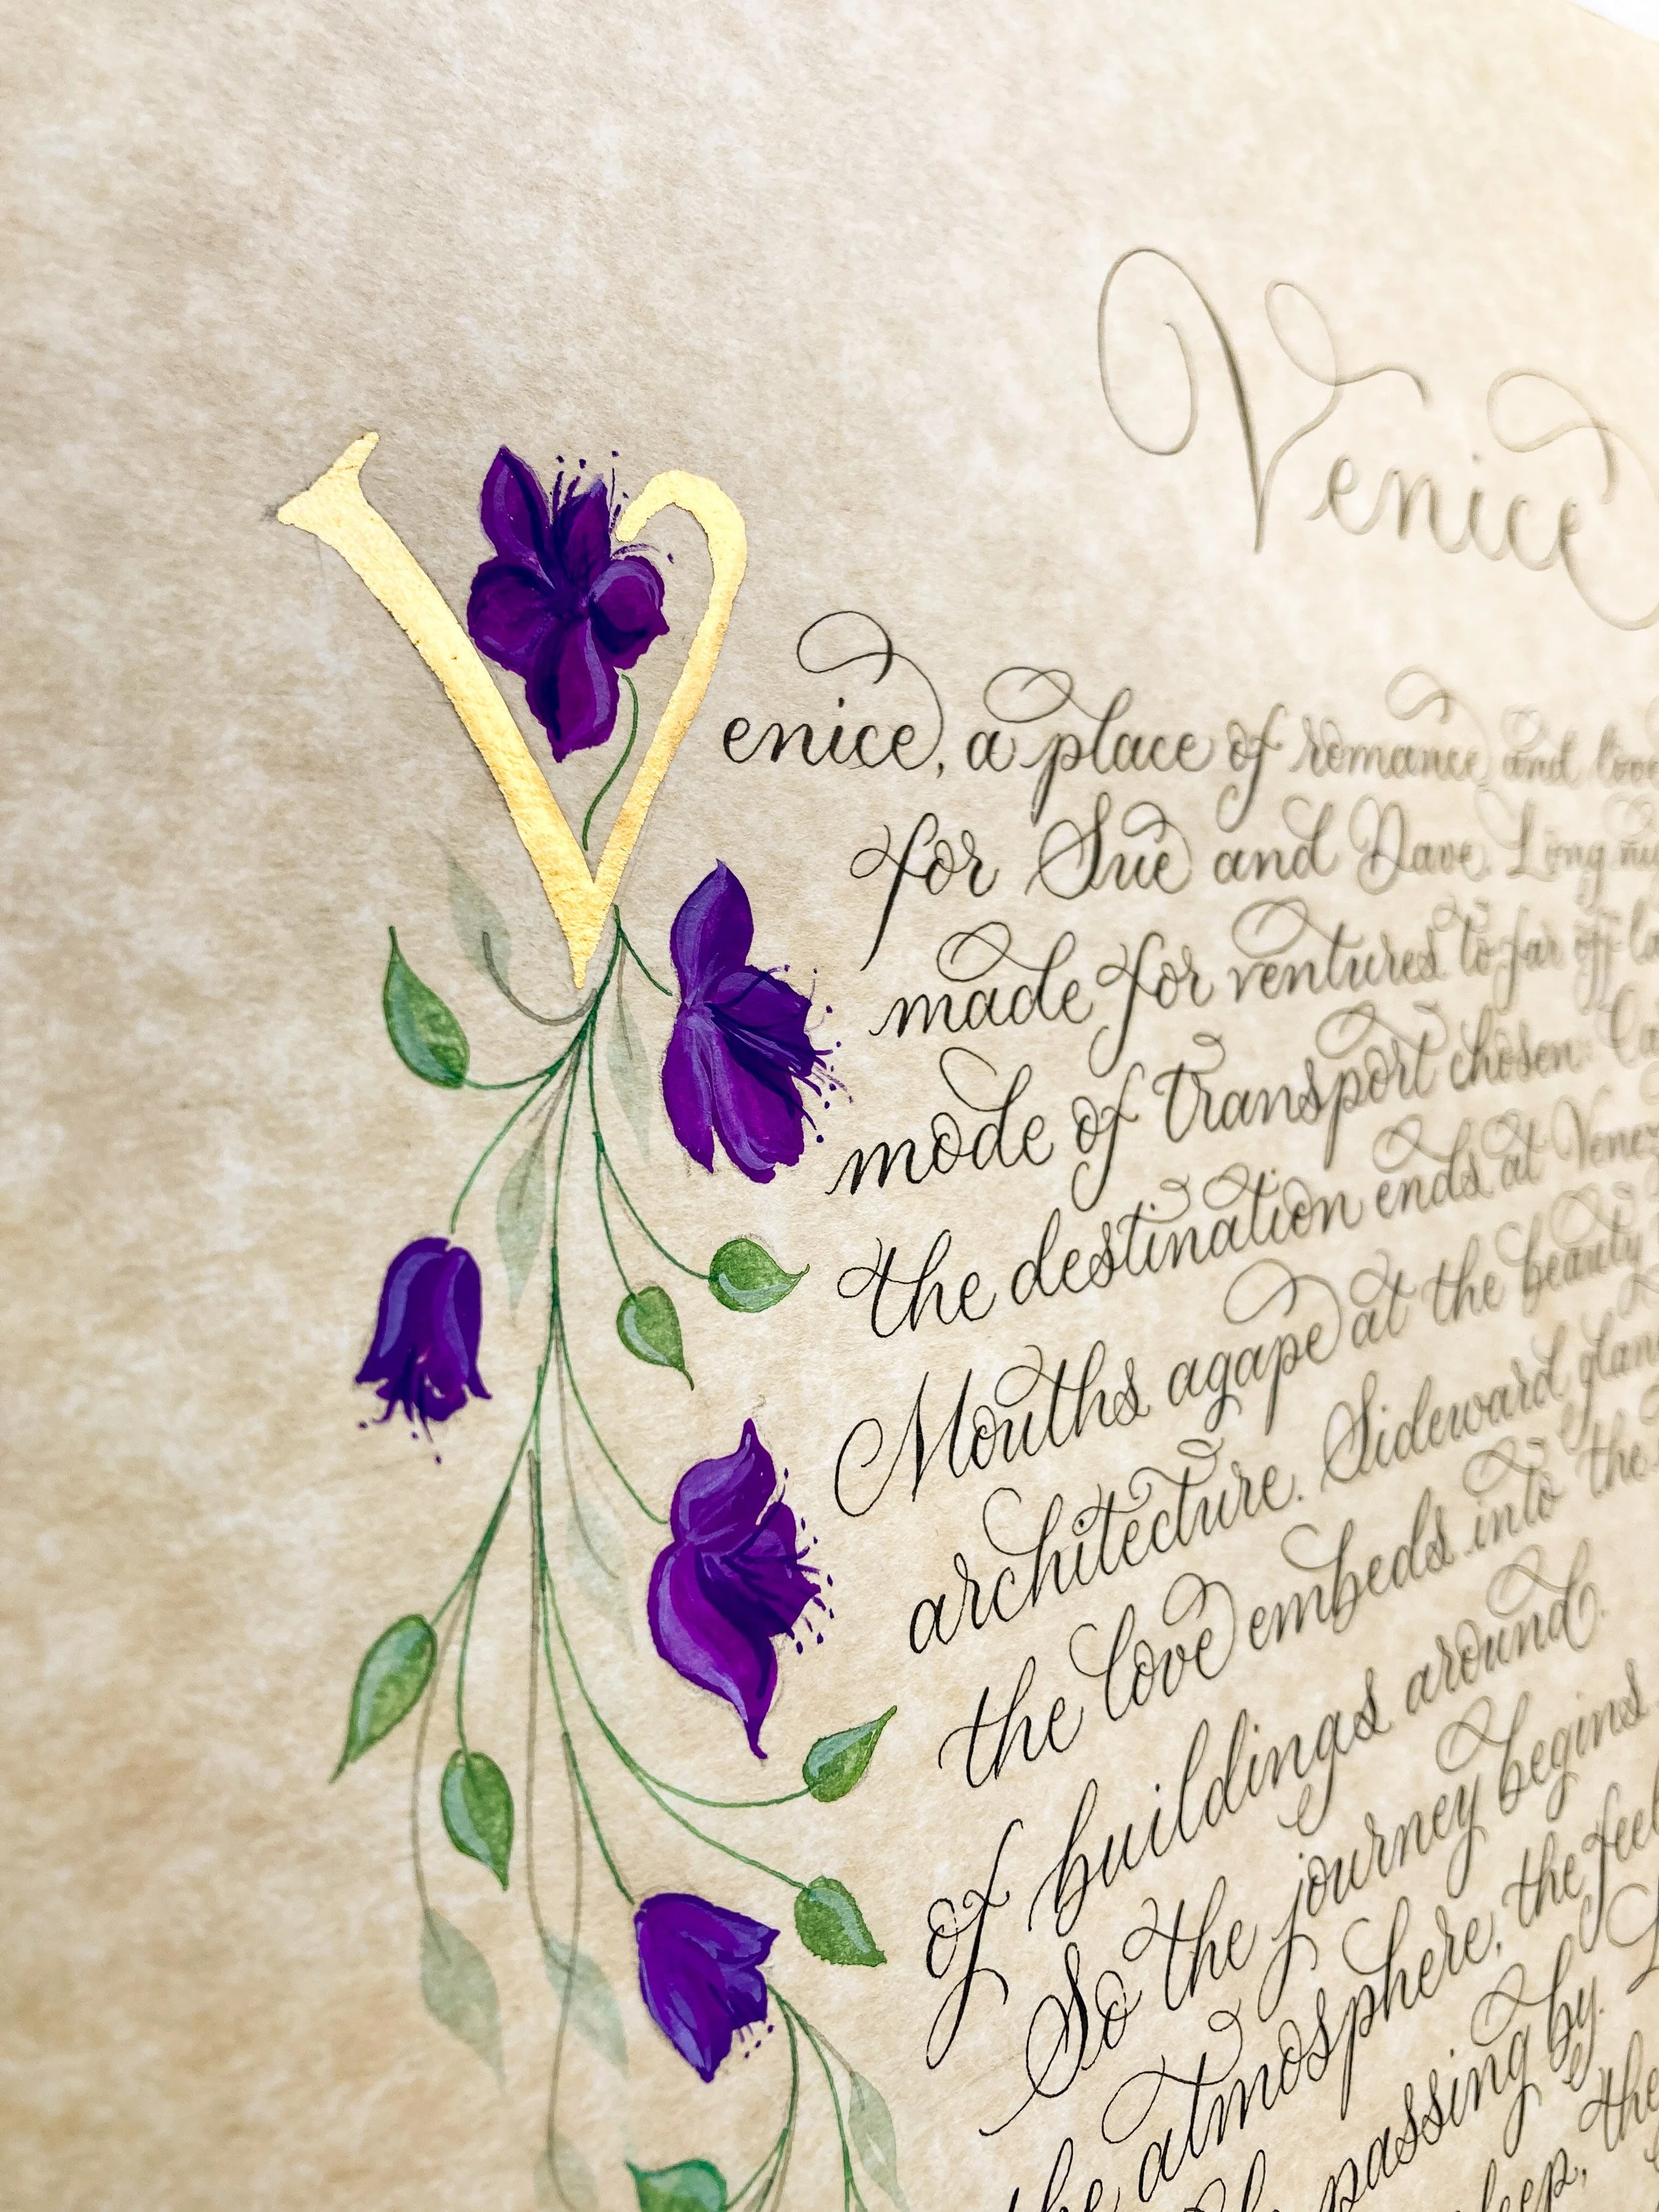 Venice
Venice, a place of romance and love
for Sue and Dave. Long
made for ventures to far off
mode of transport chosen.
the destination ends at
Mouths agape at the beauty
architecture. Sideward
the love embeds into the
of buildings around.
So the journey begins
the atmosphere, the
passing by.
the